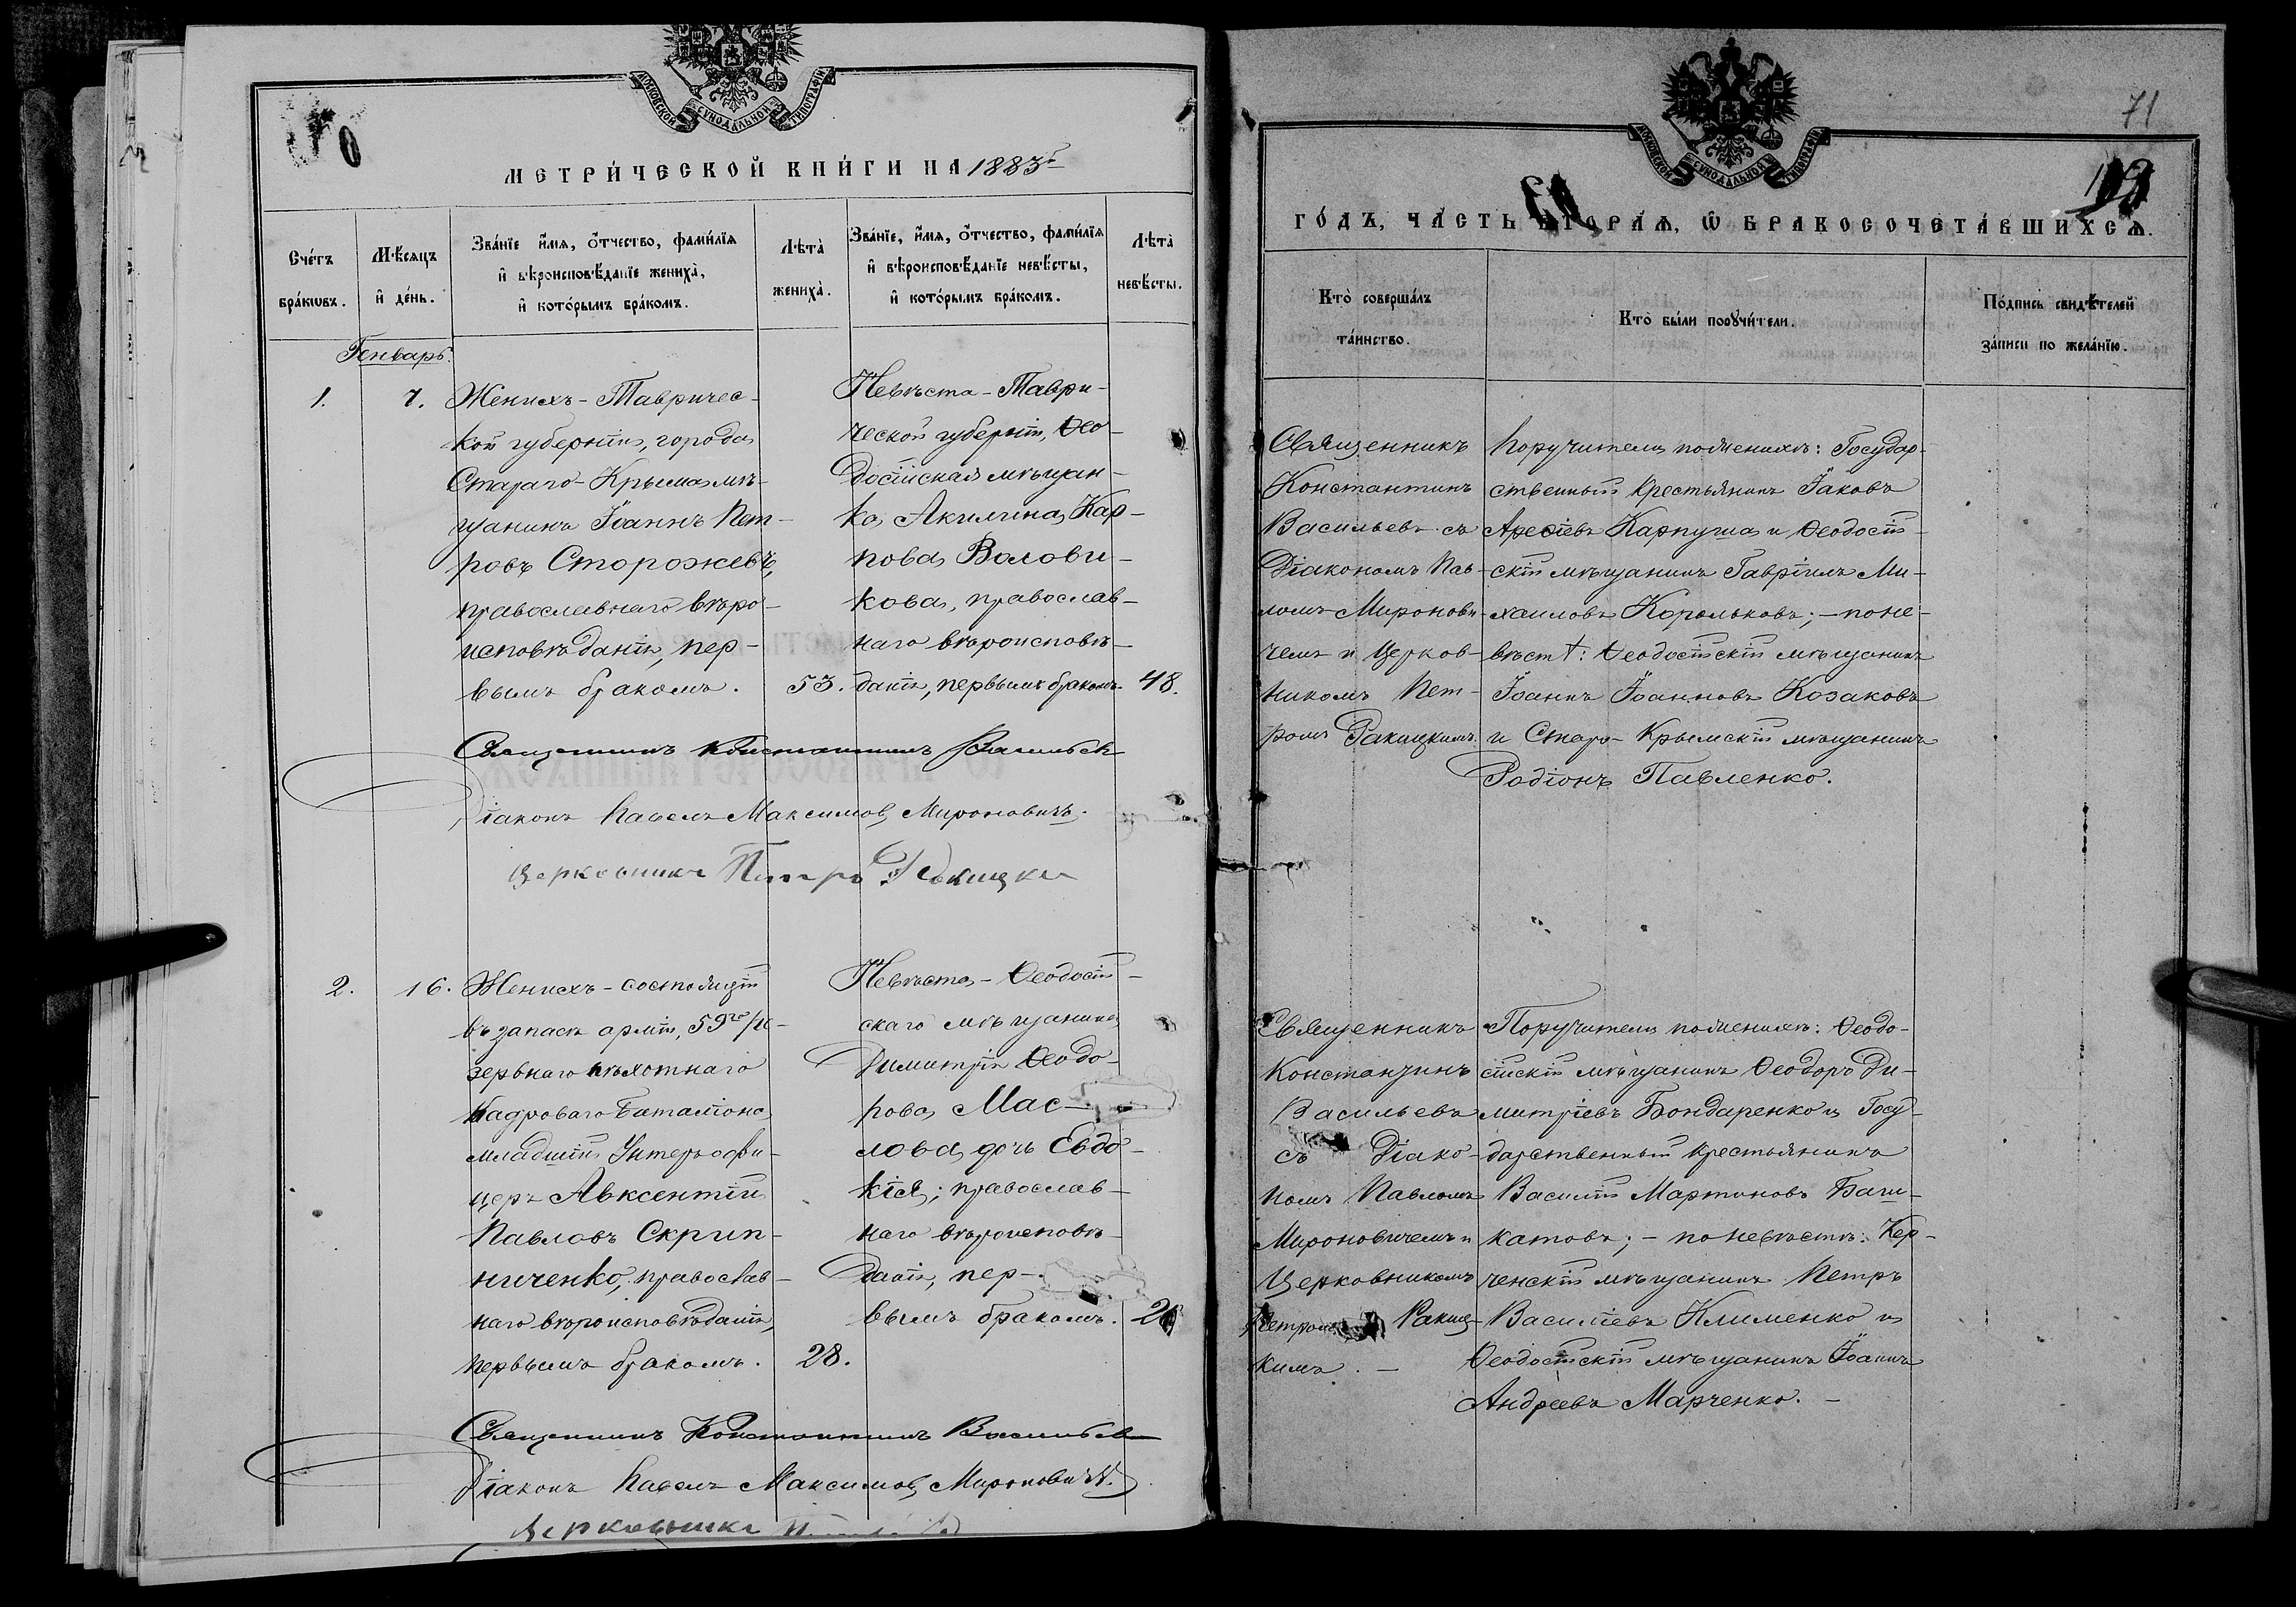 МОСКОВСКОЙ СУНОДАЛЬНОЙ ТИПОГРАФІИ
МЕТРИ́ЧЕСКОЙ КНИ́ГИ НА 1883 г.
Сче́тъ бра́кωвъ.
Мѣ́сяцъ и҆ де́нь.
Зва́нїе и҆́мя, ѻ҆́тчество, фами́лїя
и҆ вѣроисповѣ́данїе жениха̀,
и҆ кото́рымъ бра́комъ.
Лѣта̀ жениха̀.
Зва́нїе, и҆́мя, ѻ҆́тчество, фами́лїя
и҆ вѣроисповѣ́данїе невѣ́сты,
и҆ кото́рымъ бра́комъ.
Лѣта̀ невѣ́сты.
Генварь.
1. 7.
Женихъ - Тавричес-
кой губерніи, города
Стараго-Крыма мѣ-
щанинъ Іоаннъ Пет-
ровъ Сторожевъ,
православнаго вѣро-
исповѣданія, пер-
вымъ бракомъ. 53.
Невѣста - Таври-
ческой губерніи, Ѳео-
досійская мѣщан-
ка Акилина Кар-
пова Волови-
кова, православ-
наго вѣроисповѣ-
данія, первымъ бракомъ. 48.
Священникъ Константинъ Васильев
Діаконъ Павелъ Максимов Мироновичъ.
Церковникъ Петръ Ракицкий
2. 16.
Женихъ - состоящій
въ запасѣ арміи, 59го Ре-
зервнаго пѣхотнаго
Кадроваго Баталіона
младшій Унтеръ-офи-
церъ Авксентій
Павловъ Скрип-
ниченко, православ-
наго вѣроисповѣданія,
первымъ бракомъ. 28.
Невѣста - Ѳеодосій-
скаго мѣщанина
Димитрія Ѳеодо-
рова Мас-
лова дочь Евдо-
кія; православ-
наго вѣроисповѣ-
данія, пер-
вымъ бракомъ.
Священникъ Константинъ Васильев
Діаконъ Павелъ Максимов Мироновичъ.
Церковникъ
71
МОСКОВСКОЙ СУНОДАЛЬНОЙ ТИПОГРАФІИ
ГО́ДЪ, ЧА́СТЬ ВТОРА́Ѧ, Ѡ҆ БРАКОСОЧЕТА́ВШИХСѦ.
Кто̀ соверша́лъ
та́инство.
Кто̀ бы́ли порꙋчи́тели.
По́дпись свидѣ́телей
за́писи по жела́нїю.
Священникъ
Константинъ
Васильевъ съ
Діакономъ Пав-
ломъ Миронови-
чемъ и Церков-
никомъ Пет-
ромъ Ракицкимъ.
Поручители по женихѣ: Государ-
ственный крестьянинъ Іаковъ
Арефіевъ Карпуша и Ѳеодосій-
скій мѣщанинъ Гавріилъ Ми-
хаиловъ Корольковъ; - по не-
вѣстѣ: Ѳеодосійскій мѣщанинъ
Іоаннъ Іоанновъ Козаковъ
и Старо-Крымскій мѣщанинъ
Родіонъ Павленко.
Священникъ
Константинъ
Васильевъ
съ Діако-
номъ Павломъ
Мироновичемъ и
Церковникомъ
Петромъ Ракиц-
кимъ. -
Поручители по женихѣ: Ѳеодо-
сійскій мѣщанинъ Ѳеодоръ Ди-
митріевъ Бондаренко и Госу-
дарственный крестьянинъ
Василій Мартиновъ Баги-
катовъ; - по невѣстѣ: Кер-
ченскій мѣщанинъ Петръ
Василіевъ Клименко и
Ѳеодосійскій мѣщанинъ Іоаннъ
Андреевъ Марченко. -